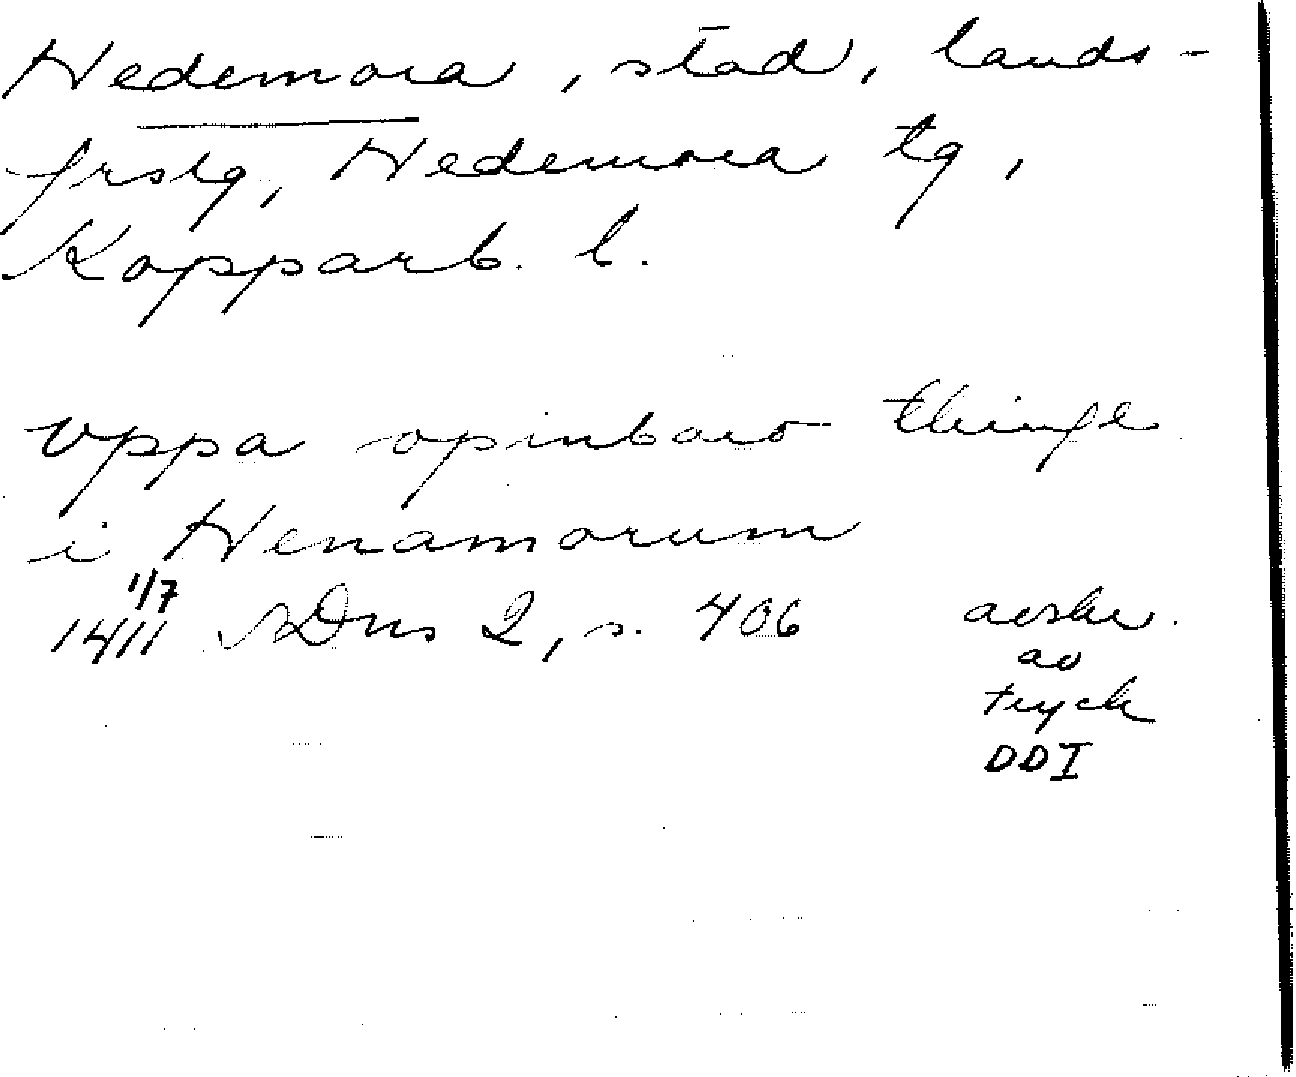 Hedemora, stad, lands-
frslg, Hedemora tg,
Kopparb. l.
vppa opinbaro thinge
i Henamorum
1/7
1411 SDns 2, s. 406 avskr.
av
tryck
DD I